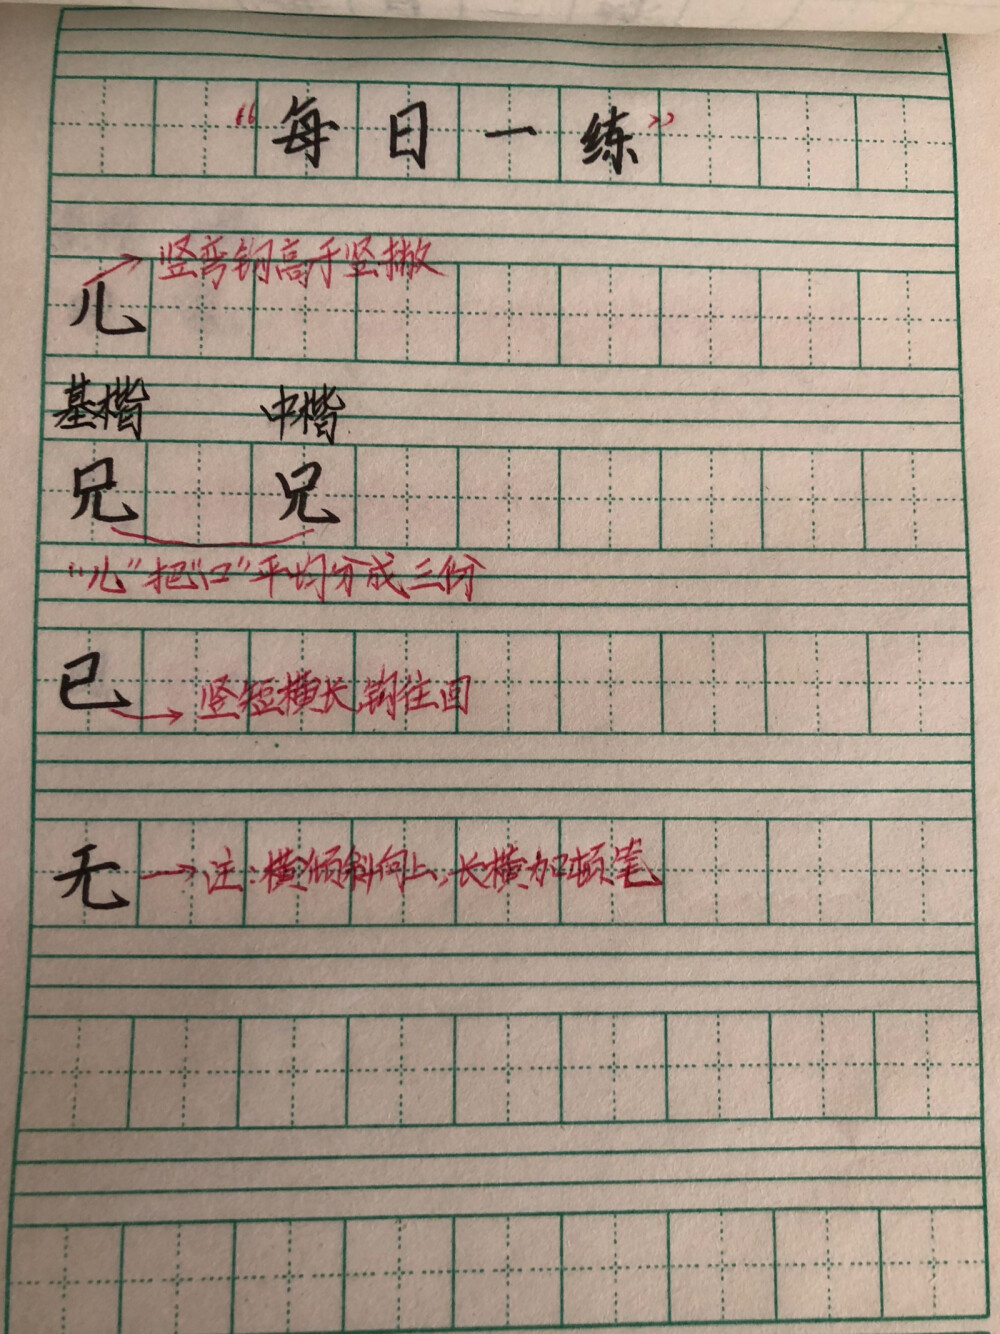 “每日一练”
竖弯钩高于竖撇
儿
基楷 中楷
兄 兄
“儿”把“口”平均分成三份
已 竖短横长,钩往回
无 → 注:横倾斜向上,长横加顿笔